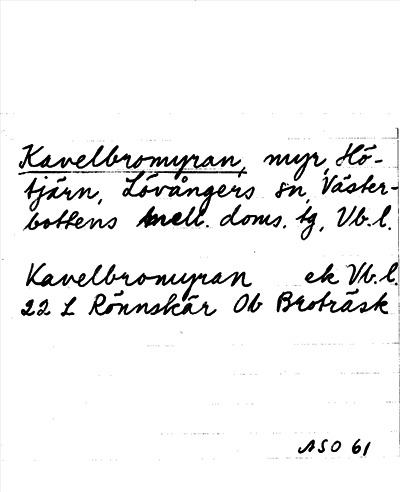 Kavelbromyran, myr, Hö-
tjärn, Lövångers sn, Väster-
bottens mell. doms. tg, Vb. l.
Kavelbromyran ek Vb. l.
22 L Rönnskär Ob Broträsk
ASO 61